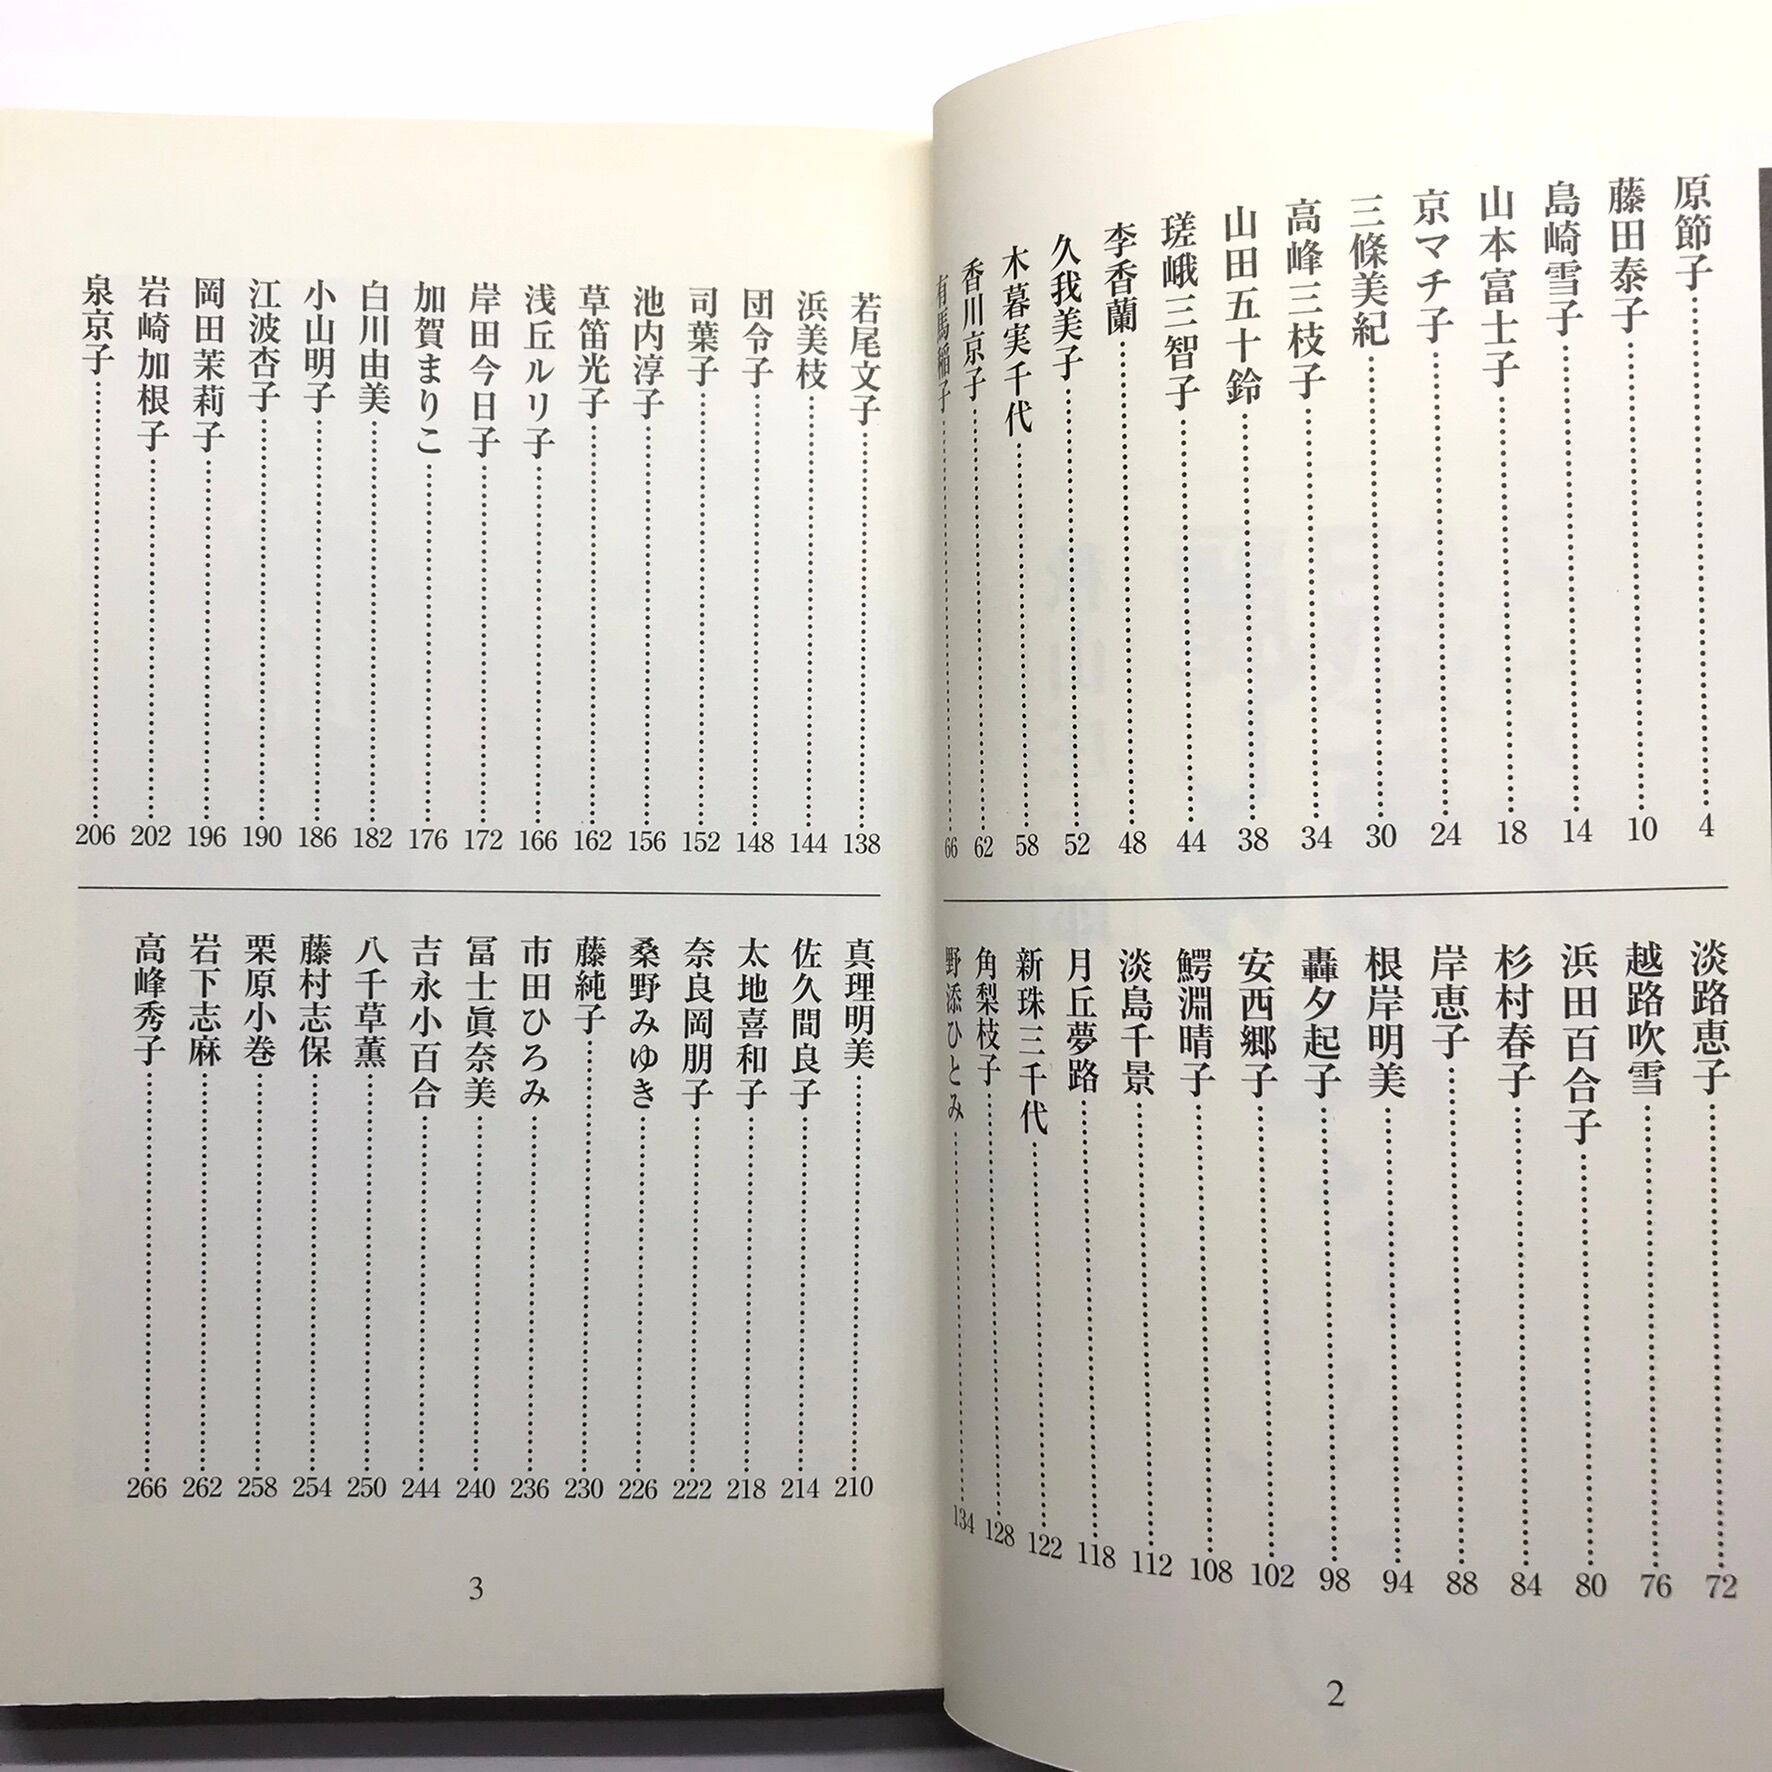 原節子……4
藤田泰子……10
島崎雪子……14
山本富士子……18
京マチ子……24
三條美紀……30
高峰三枝子……34
山田五十鈴……38
瑳峨三智子……44
李香蘭……48
久我美子……52
木暮実千代……58
香川京子……62
有馬稲子……66
淡路恵子……72
越路吹雪……76
浜田百合子……80
杉村春子……84
岸恵子……88
根岸明美……94
轟夕起子……98
安西郷子……102
鰐淵晴子……108
淡島千景……112
月丘夢路……118
新珠三千代……122
角梨枝子……128
野添ひとみ……134
2
若尾文子……138
浜美枝……144
団令子……148
司葉子……152
池内淳子……156
草笛光子……162
浅丘ルリ子……166
岸田今日子……172
加賀まりこ……176
白川由美……182
小山明子……186
江波杏子……190
岡田茉莉子……196
岩崎加根子……202
泉京子……206
真理明美……210
佐久間良子……214
太地喜和子……218
奈良岡朋子……222
桑野みゆき……226
藤純子……230
市田ひろみ……236
冨士眞奈美……240
吉永小百合……244
八千草薫……250
藤村志保……254
栗原小巻……258
岩下志麻……262
高峰秀子……266
3